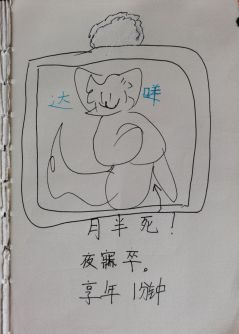 达咪
月半死！
夜寐卒。
享年1分钟